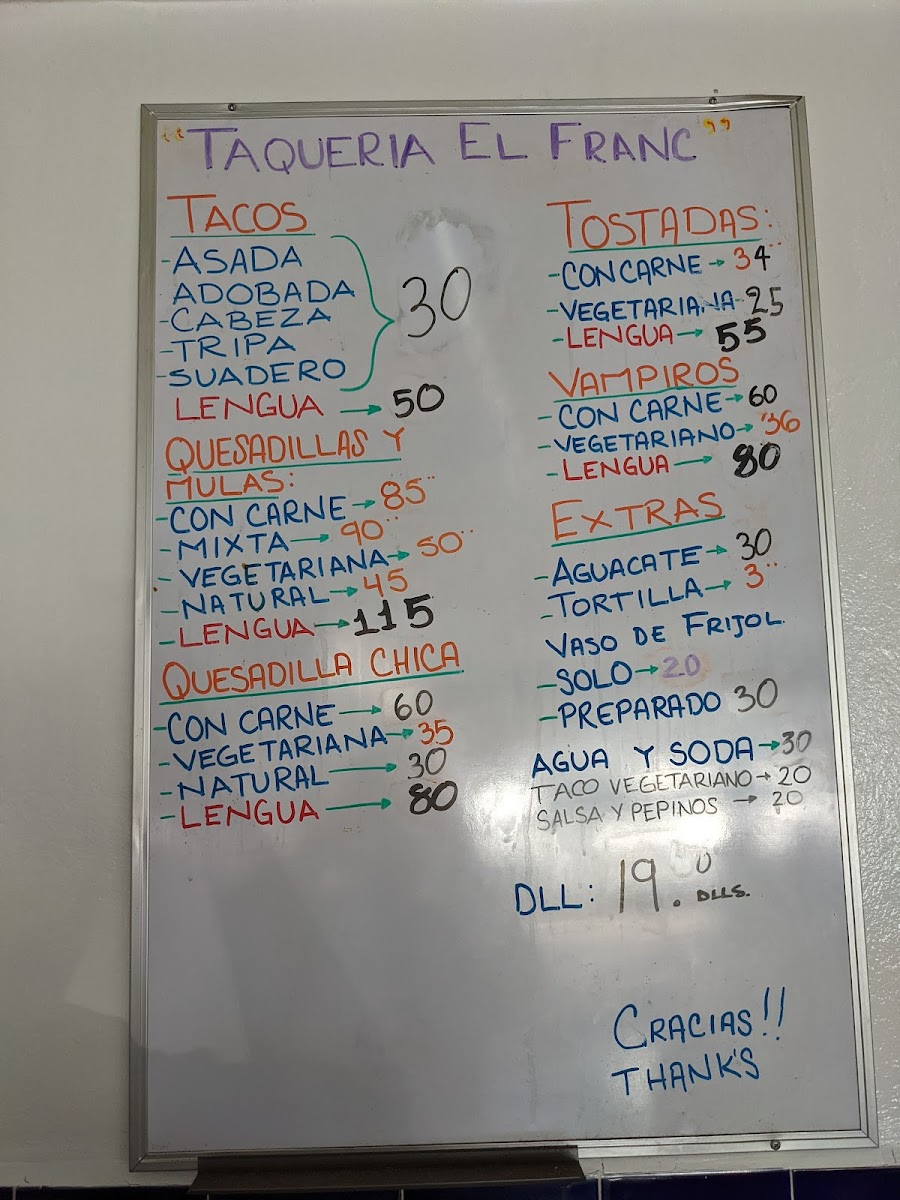 "TAQUERIA EL FRANC"
TACOS
-ASADA
ADOBADA
-CABEZA
-TRIPA
-SUADERO
30
LENGUA → 50
QUESADILLAS Y
MULAS:
-CON CARNE → 85
-MIXTA → 90
-VEGETARIANA → 50
-NATURAL → 45
-LENGUA → 115
QUESADILLA CHICA
-CON CARNE → 60
-VEGETARIANA → 35
-NATURAL → 30
-LENGUA → 80
TOSTADAS:
-CON CARNE → 34
-VEGETARIANA - 25
-LENGUA → 55
VAMPIROS
-CON CARNE → 60
-VEGETARIANO → 36
-LENGUA → 80
EXTRAS
-AGUACATE → 30
-TORTILLA → 3
VASO DE FRIJOL
-SOLO → 20
-PREPARADO 30
AGUA Y SODA → 30
TACO VEGETARIANO → 20
SALSA Y PEPINOS → 20
DLL: 19.0 DLLS.
GRACIAS!!
THANK'S